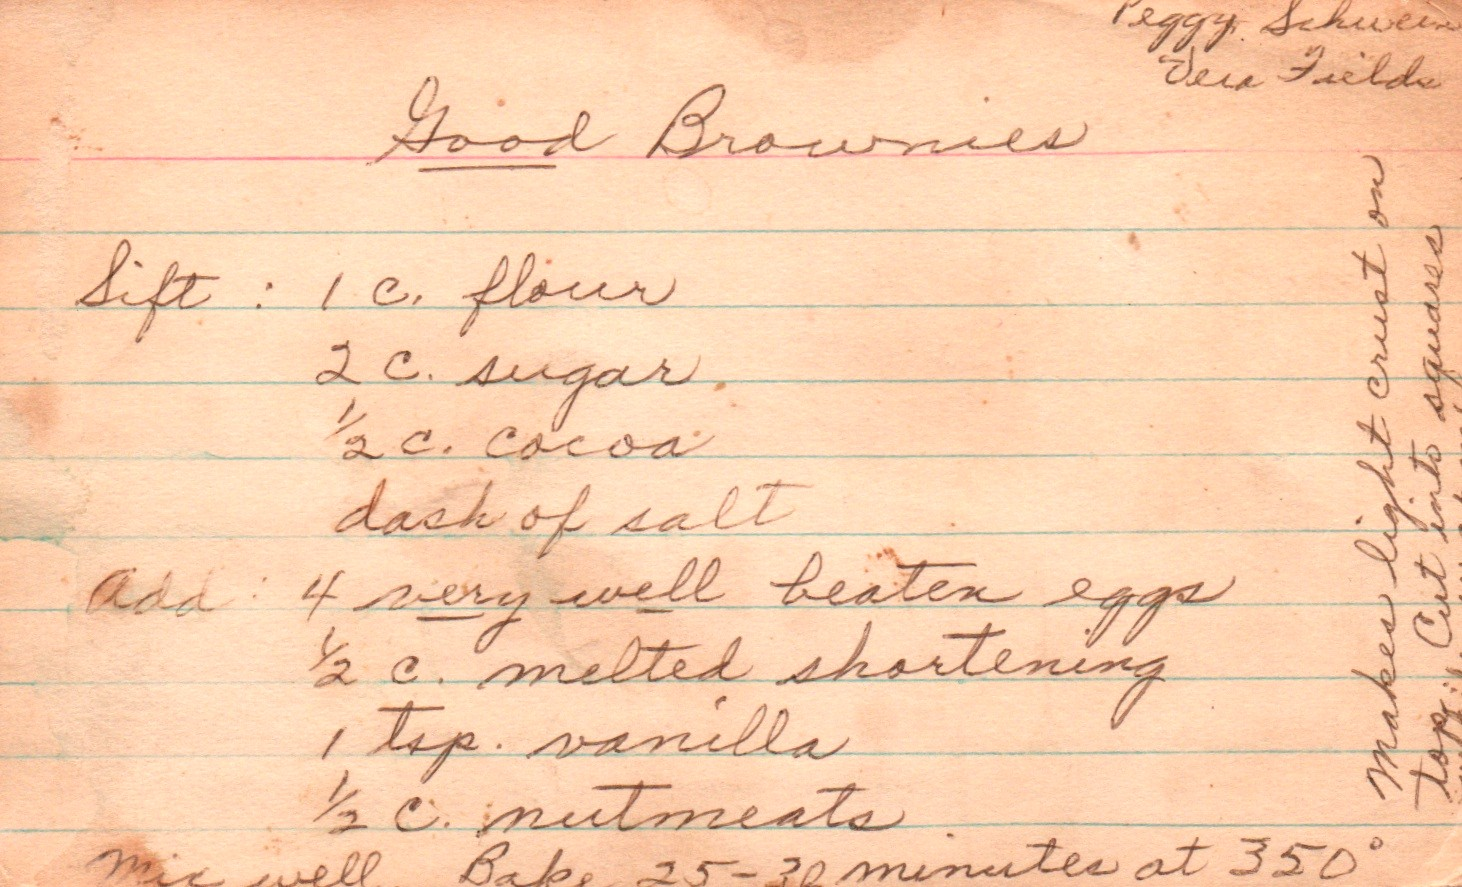 Peggy
Vera Fields
Good Brownies
Sift : 1 c. flour
2 c. sugar
1/2 c. cocoa
dash of salt
Add : 4 very well beaten eggs
1/2 c. melted shortening
1 tsp. vanilla
1/2 c. nutmeats
Mix well. Bake 25-30 minutes at 350°
Makes light crust on
top. Cut into squares